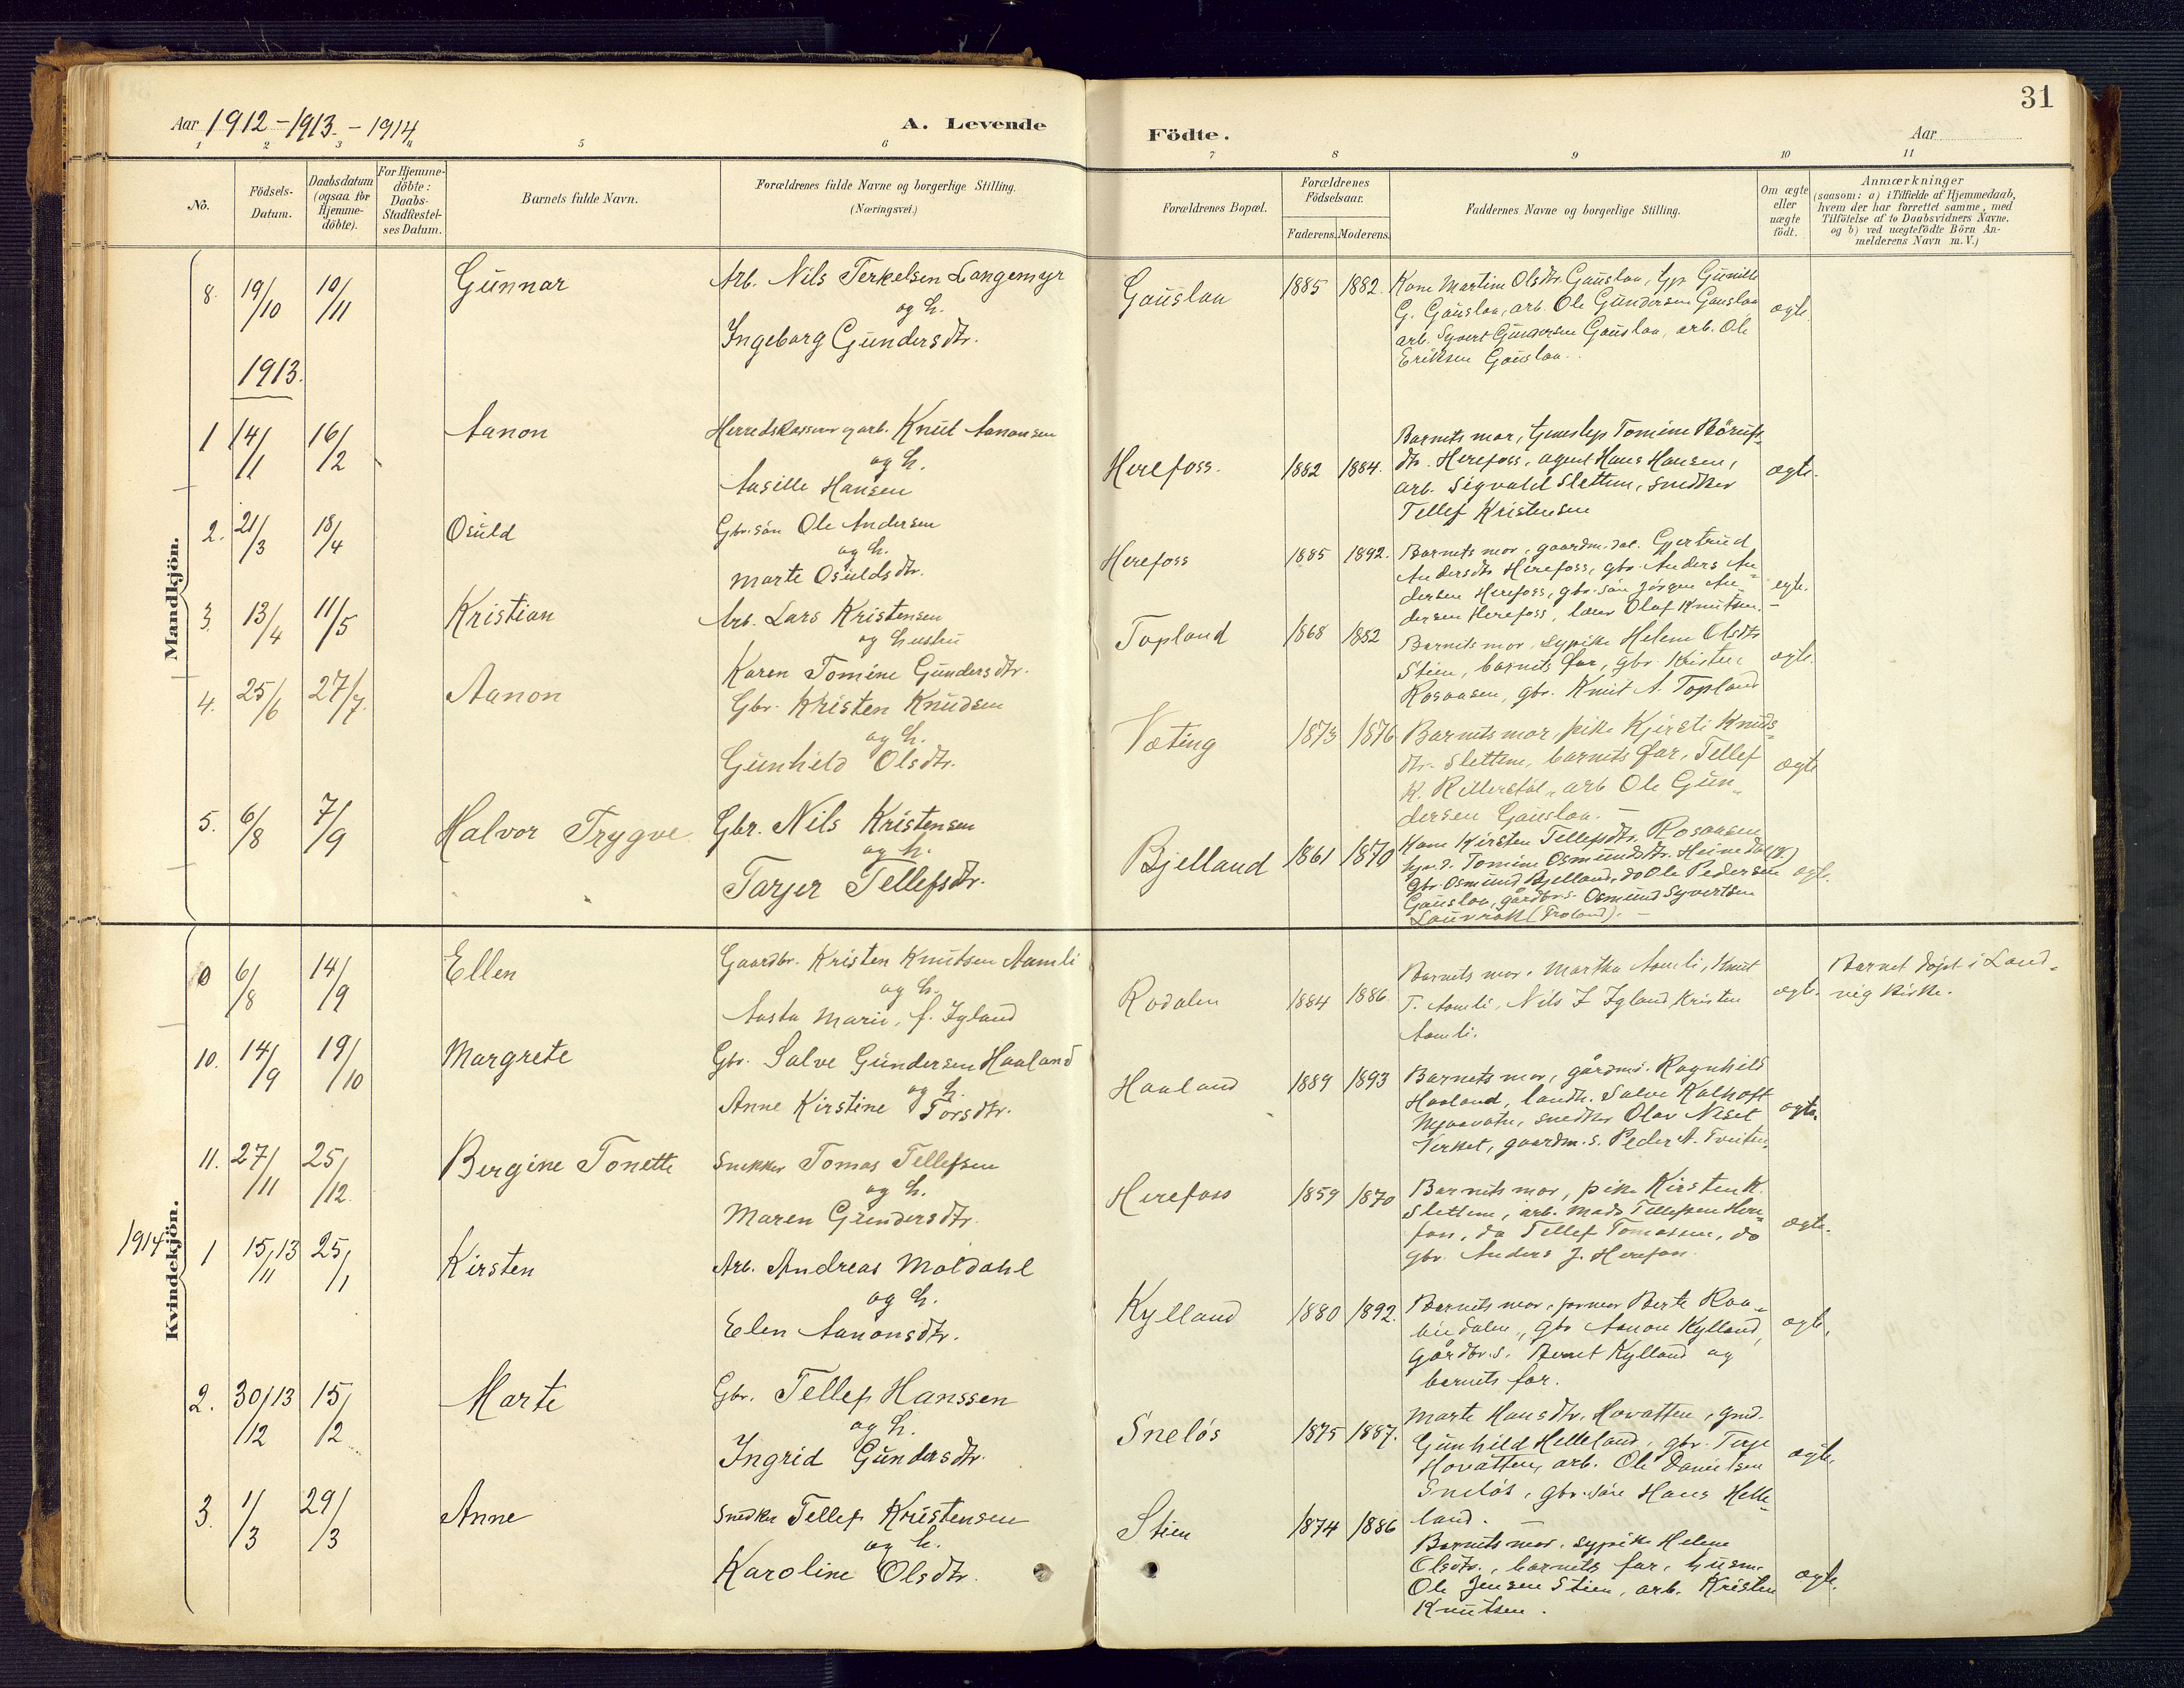 Aar 1912-1913.-1914
A. Levende
Födte.
Aar
31
1 2 3 4 5 6 7 8 9 10 11
No.
Födsels-
Datum.
Daabsdatum
(ogsaa for
Hjemme-
döbte).
For Hjemme-
döbte:
Daabs-
Stadfæstel-
ses Datum.
Barnets fulde Navn.
Forældrenes fulde Navne og borgerlige Stilling.
(Næringsvei.)
Forældrenes Bopæl.
Forældrenes
Födselsaar.
Faderens.
Moderens.
Faddernes Navne og borgerlige Stilling.
Om ægte
eller
uægte
födt.
Anmærkninger
(saasom: a) i Tilfælde af Hjemmedaab,
hvem der har forrettet samme, med
Tilföielse af to Daabsvidners Navne.
og b) ved uægtefödte Börn An-
melderens Navn m. V.)
Mandkjön.
8. 19/10 10/11 Gunnar
Arb. Nils Terkelsen Langemyr
og h.
Ingeborg Gundersdtr.
Gauslaa 1885 1882.
Kone Martine Olsdtr. Gauslaa, Gunild
G. Gauslaa, arb. Ole Gundersen Gauslaa
arb. Syvert Gundersen Gauslaa, arb. Ole
Eriksen Gauslaa.
ægte.
1913.
1 14/1 16/2 Aanon
Herredskasserer og arb. Knut Aanonsen
og h.
Aasille Hansen
Herefoss. 1882 1884.
Barnets mor, Tomine
dtr. Herefoss, agent Hans Hansen,
arb. Sigvald Slettene, snedker
Tellef Kristensen
ægte.
2. 21/3 18/4 Osuld
Gbr. sön Ole Andersen
og h.
Marte Osuldsdtr.
Herefoss 1885 1892.
Barnets mor, gaardm.dat. Gjertrud
Andersdtr Herefoss, gbr. Anders An-
dersen Herefoss, gbr. sön Jörgen An-
dersen Herefoss, lærer Olaf Knutsen.
egte.
3. 13/4 11/5 Kristian
Arb. Lars Kristensen
og hustru
Karen Tomine Gundersdtr.
Topland 1868 1882
Barnets mor, sypike Helene Olsdtr
Stien, barnets far, gbr. Kristen
Rosaasen, gbr. Knut A. Topland
ægte.
4. 25/6 27/7. Aanon
Gbr. Kristen Knudsen
og h.
Gunhild Olsdtr.
Væting 1873 1876
Barnets mor, pike Kjersti Knuds-
dtr. Slettene, barnets far, Tellef
K. arb Ole Gun-
dersen Gauslaa.
ægte
5. 6/8 7/9 Halvor Trygve
Gbr. Nils Kristensen
og h.
Tarjer Tellefsdtr.
Bjelland 1861 1870
Kone Kirsten Tellefsdtr. Rosaasen
Tomine Osmundsdtr. Heimdal
gbr. Osmund Bjelland, do Ole Pedersen
Gauslaa, gårdbr.s. Osmund Syvertsen
Lauvrak (Froland).
ægte.
Kvindekjön.
6/8 14/9 Ellen
Gaardbr. Kristen Knutsen Aamli
og h.
Aasta Marie, f. Igland
Rodalen 1884 1886.
Barnets mor, Martha Aamli, Knut
T. Aamli, Nils J Igland, Kristen
Aamli.
ægte.
Barnet döpt i Land-
vig kirke.
10. 14/9 19/10 Margrete
Gbr. Salve Gundersen Haaland
og h.
Anne Kirstine Torsdtr.
Haaland 1889 1893
Barnets mor, gårdm.s. Ragnhild
Haaland, landh. Salve Kalhoft
Mjaavatn, snedker Olav Neset
Verket, gaardm. s. Peder A. Tveiten
ægte.
11. 27/11 25/12. Bergine Tonette
Snekker Tomas Tellefsen
og h.
Maren Gundersdtr.
Herefoss 1859 1870
Barnets mor, pike Kirsten K.
Slettene, arb. Mads Tellefsen Here-
foss, do Tellef Tomassen, do
gbr. Anders J. Herefoss.
ægte.
1914 1 15/11 13 25/1 Kirsten
Arb. Andreas Moldahl
og h.
Elen Aanonsdtr.
Kylland 1880 1892.
Barnets mor, Berte
gbr Aanon Kylland,
gårdbr.s. Bernt Kylland og
barnets far.
ægte.
2. 30/12 13 15/2 Marte
Gbr. Tellef Hanssen
og h.
Ingrid Gundersdtr.
Snelös 1875 1887.
Marte Hansdtr. Hovatten,
Gunhild Helleland, gbr. Terje
Hovatten, arb. Ole Danielsen
Snelös, gbr. sön Hans Helle-
land.
ægte.
3. 1/3 29/3 Anne
Snedker Tellef Kristensen
og h.
Karoline Olsdtr.
Stien 1874 1886
Barnets mor, sypike Helene
Olsdtr., barnets far, husm.
Ole Jensen Stien, arb. Kristen
Knutsen.
ægte.